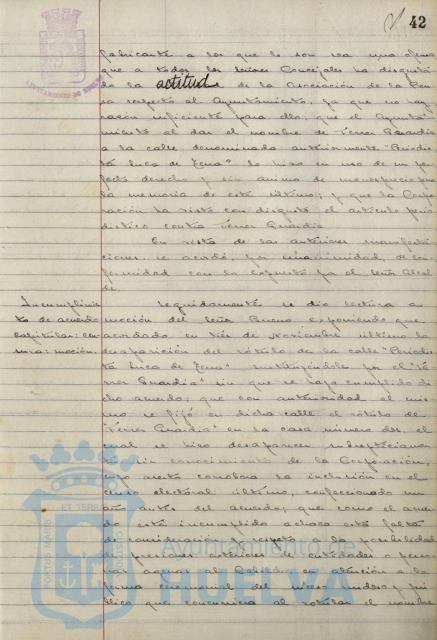 42
fabricante a los que le son sea una ofensa
que a todos los señores Concejales ha disgustado
la actitud de la Asociación de la Prensa
respecto al Ayuntamiento, ya que no hay
razón suficiente para ello; que el Ayuntamiento
al dar el nombre de Ferrer Guardia
a la calle denominada anteriormente "Periodista
Luca de Tena" lo hizo en uso de un perfecto
derecho y sin ánimo de menosprecio para
la memoria de este último; y que la Corporación
ha visto con disgusto el artículo periodístico
contra Ferrer Guardia.
En vista de las anteriores manifestaciones,
se acordó, por unanimidad, de conformidad
con lo expuesto por el señor Alcalde.
Incumplimiento
de acuerdo
capitular: censura:
moción.
Seguidamente se dio lectura a
moción del señor Bueno exponiendo que
acordado en tres de Noviembre último la
desaparición del rótulo de la calle "Periodista
Luca de Tena" sustituyéndole por el "Ferrer
Guardia" sin que se haya cumplido dicho
acuerdo; que con anterioridad al mismo
se fijó en dicha calle el rótulo de
"Ferrer Guardia" en la casa número dos, el
cual se hizo desaparecer
sin conocimiento de la Corporación,
cuyo aserto corrobora la inclusión en el
censo electoral último, confeccionado un
año antes del acuerdo; que como el acuerdo
está incumplido achaca esta falta
de consideración y respeto a la posibilidad
de presiones extrañas de entidades o personas
ajenas al Cabildo en atención a la
forma del
que concurriera al rotular el nombre
AYUNTAMIENTO DE HUELVA
PORTUS MARIS ET TERRAE CUSTODIA
Ayuntamiento de
HUELVA